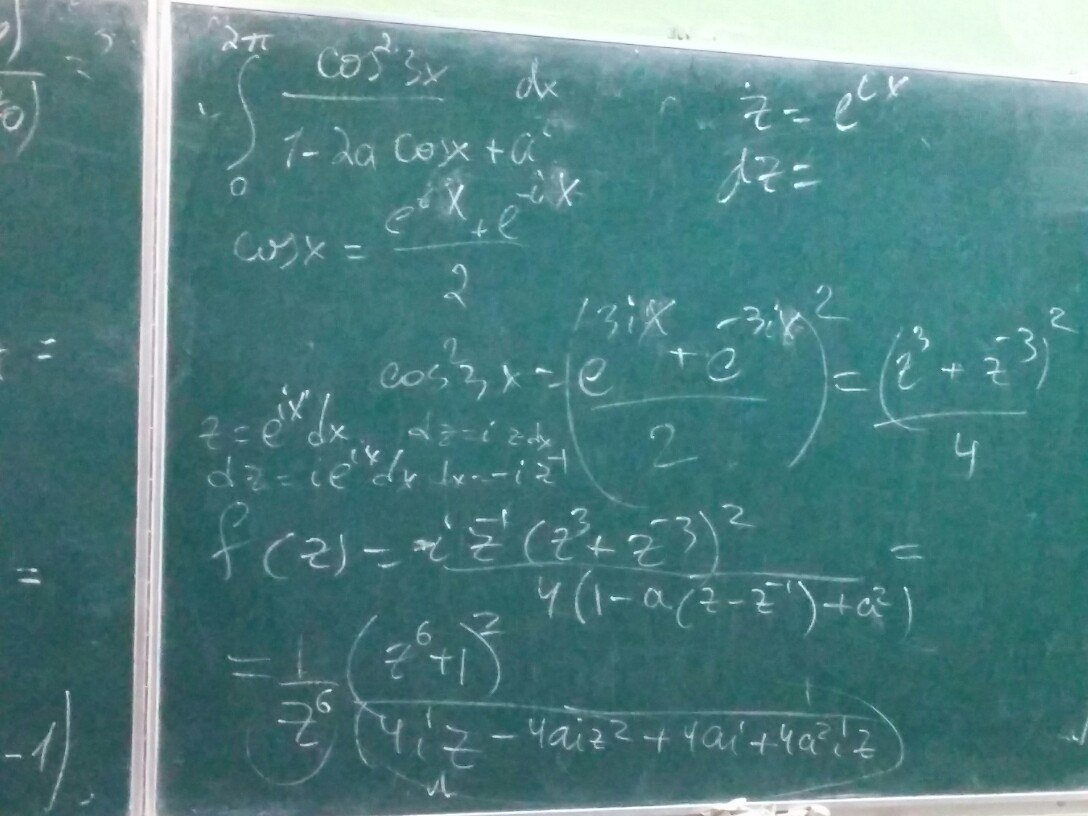 ∫₀^{2π} cos²3x / (1-2a cosx + a²) dx
z = e^{ix}
dz =
cosx = (e^{ix} + e^{-ix}) / 2
cos²3x = ((e^{3ix} + e^{-3ix}) / 2)² = (z³ + z^{-3})² / 4
z = e^{ix} dx dz = i z dx
dz = i e^{ix} dx dx = -i z^{-1}
f(z) = -i z^{-1} (z³ + z^{-3})² / 4(1 - a(z - z^{-1}) + a²) =
= 1/z⁶ (z⁶ + 1)² / (4iz - 4aiz² + 4ai + 4a²iz)
-1)